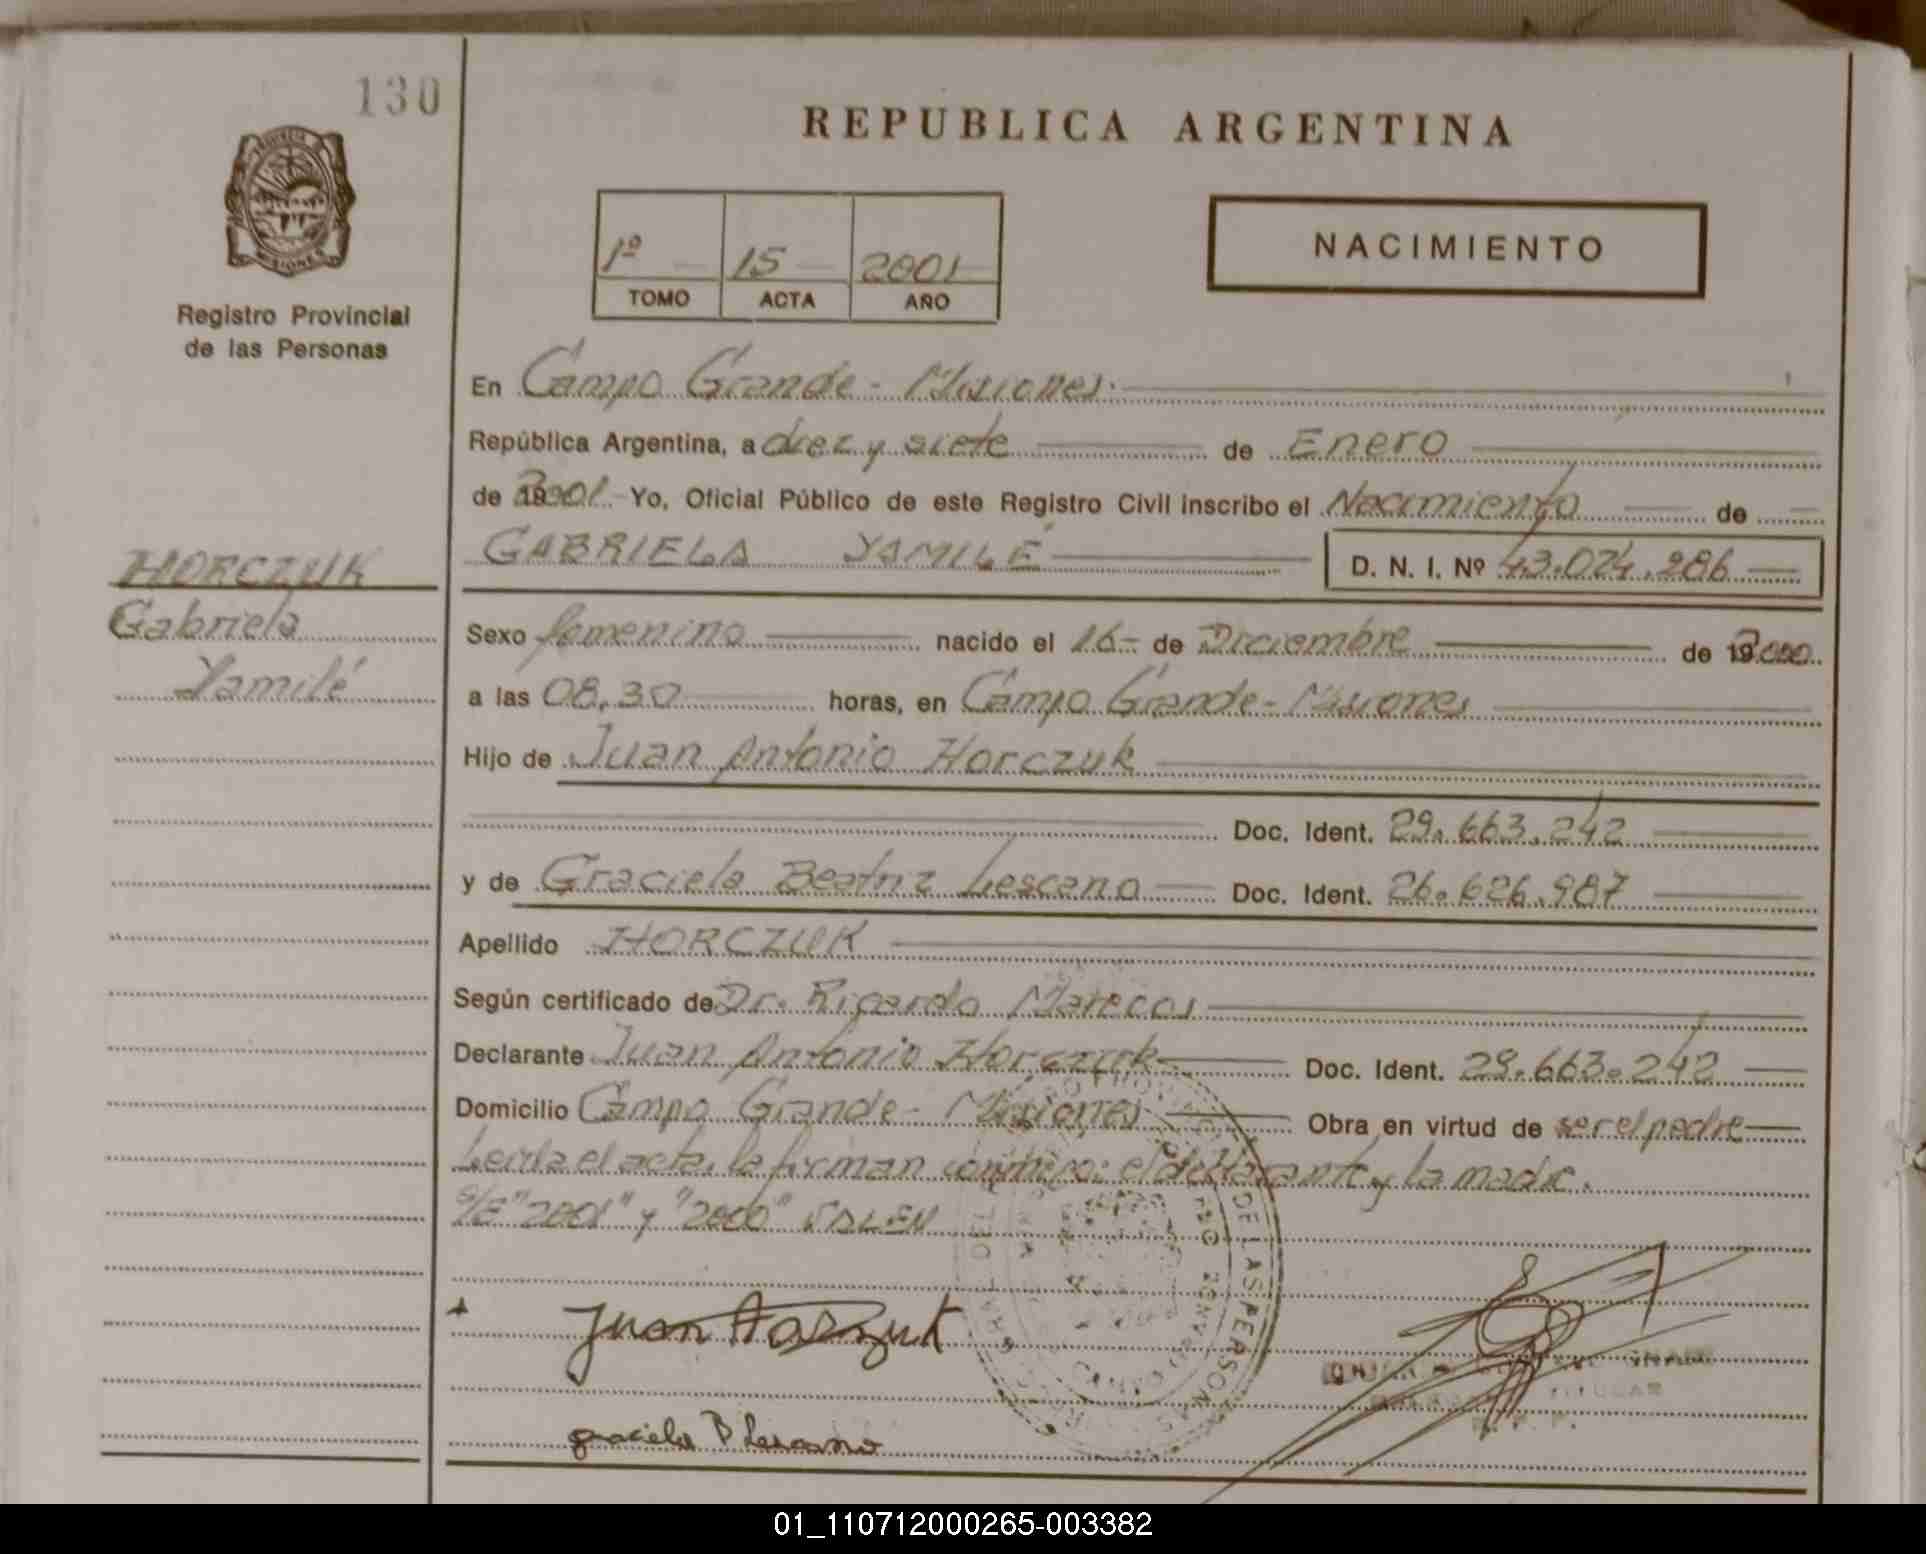 130
REPUBLICA ARGENTINA
PROVINCIA
MISIONES
Registro Provincial
de las Personas
1º 15 2001
TOMO ACTA AÑO
NACIMIENTO
En Campo Grande - Misiones.
República Argentina, a diez y siete de Enero
de 2001 Yo, Oficial Público de este Registro Civil inscribo el Nacimiento de
GABRIELA YAMILÉ D. N. I. Nº 43.024.286
HORCZUK
Gabriela
Yamilé
Sexo femenino nacido el 16 - de Diciembre de 2000
a las 08,30 horas, en Campo Grande - Misiones
Hijo de Juan Antonio Horczuk
Doc. Ident. 29.663.242
y de Graciela Beatriz Lescano Doc. Ident. 26.626.987
Apellido HORCZUK
Según certificado de Dr. Ricardo Marecos
Declarante Juan Antonio Horczuk Doc. Ident. 29.663.242
Domicilio Campo Grande - Misiones Obra en virtud de ser el padre
Leida el acta, la firman conmigo: el declarante y la madre.
S/E "2001" y "2000" VALEN
Juan Horczuk
DE LAS PERSONAS
TITULAR
graciela B Lescano
01_110712000265-003382